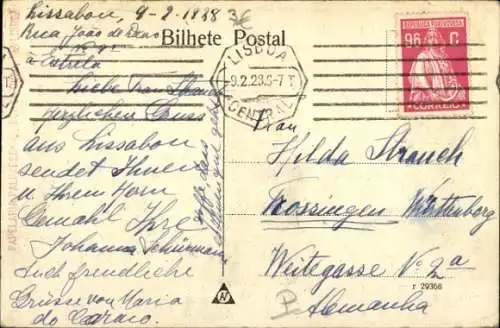 Lissabon, 9-2-1928
Rua João de Deus
Nº 9¹
à Estrela
Bilhete Postal
LISBOA
9.2.28.5-7 T
CENTRAL
REPUBLICA PORTUGUESA
96 C
CORREIO
Liebe Frau Strauch
herzlichen Gruss
aus Lissabon
sendet Ihnen
u. Ihrem Herrn
Gemahl Ihre
Johanna Schürmann
Auch freundliche
Grüsse von Maria
do Carmo.
Frau
Hilda Strauch
Trossingen Württemberg
Weitegasse Nº 2a
Alemanha
r 29356